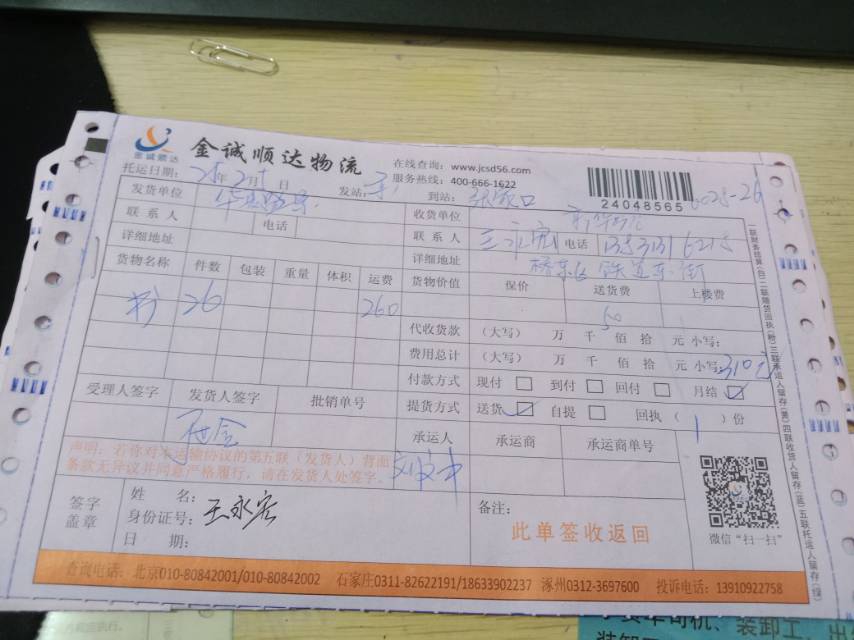 金诚顺达
金诚顺达物流
在线查询：www.jcsd56.com
服务热线：400-666-1622
24048565
6025-26
托运日期： 年2月1日 发站： 到站：张家口
发货单位 收货单位
联系人 电话 联系人 王永宏 电话
详细地址 详细地址 桥东区铁道东街
货物名称 件数 包装 重量 体积 运费 货物价值 保价 送货费 上楼费
26 260 50
代收货款 （大写） 万 千 佰 拾 元 小写：
费用总计 （大写） 万 千 佰 拾 元 小写：310元
付款方式 现付 到付 回付 月结
受理人签字 发货人签字 批销单号 提货方式 送货 自提 回执（1）份
承运人 承运商 承运商单号
声明：若你对本运输协议的第五联（发货人）背面
条款无异议并同意严格履行，请在发货人处签字。
签字
盖章
姓 名：
身份证号：
王永宏
日 期：
备注：
此单签收返回
微信“扫一扫”
查询电话：北京010-80842001/010-80842002 石家庄0311-82622191/18633902237 涿州0312-3697600 投诉电话：13910922758